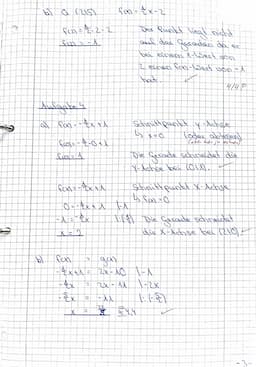 b) Q (2|5) f(x) = ½x - 2
f(x) = ½·2 - 2 Der Punkt liegt nicht
f(x) = -1 auf der Geraden da er
bei einem x-Wert von
2 einen f(x)-Wert von -1
hat.
Aufgabe 4
a) f(x) = -½x + 1 Schnittpunkt y-Achse
↳ x = 0
f(x) = -½·0 + 1
f(x) = 1 Die Gerade schneidet die
y-Achse bei (0|1).
f(x) = -½x + 1 Schnittpunkt x-Achse
↳ f(x) = 0
0 = -½x + 1 |-1
-1 = -½x Die Gerade schneidet
x = 2 die x-Achse bei (2|0).
b) f(x) = g(x)
-½x + 1 = 2x - 10 |-1
-½x = 2x - 11 |-2x
x = 4,4
-3-